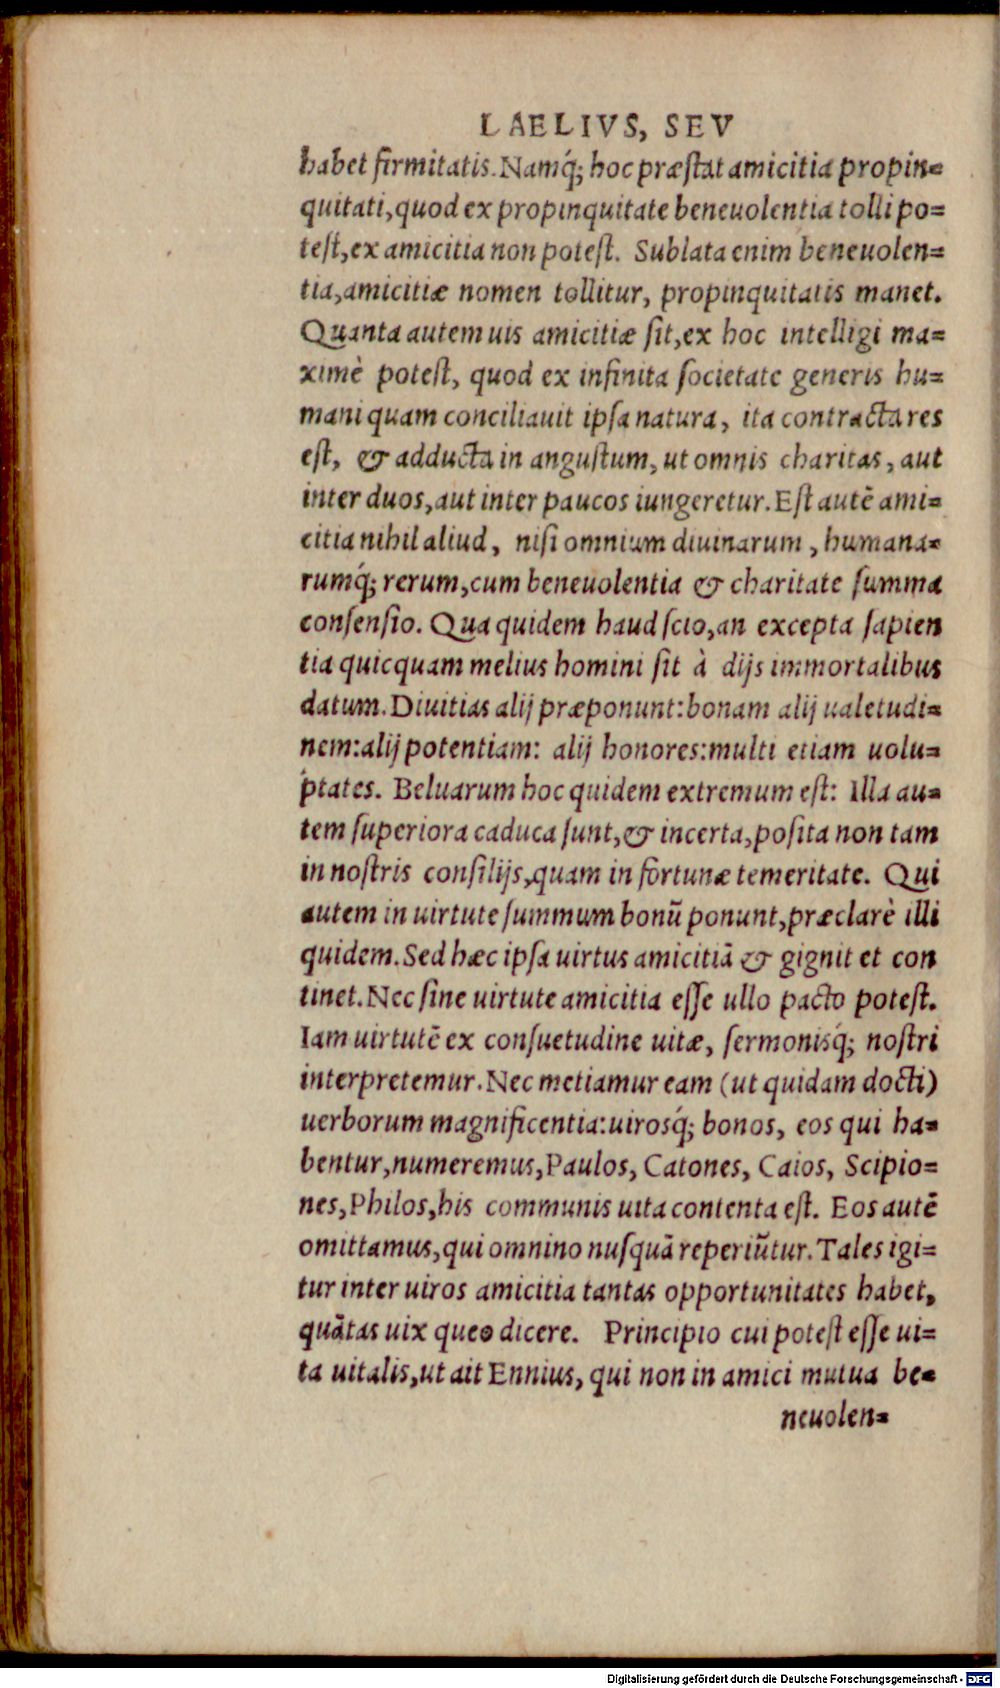 LAELIVS, SEV
habet firmitatis. Namq́; hoc præstat amicitia propin=
quitati, quod ex propinquitate beneuolentia tolli po=
test, ex amicitia non potest. Sublata enim beneuolen=
tia, amicitiæ nomen tollitur, propinquitatis manet.
Quanta autem uis amicitiæ sit, ex hoc intelligi ma=
ximè potest, quod ex infinita societate generis hu=
mani quam conciliauit ipsa natura, ita contracta res
est, & adducta in angustum, ut omnis charitas, aut
inter duos, aut inter paucos iungeretur. Est autē ami=
citia nihil aliud, nisi omnium diuinarum, humana=
rumq́; rerum, cum beneuolentia & charitate summa
consensio. Qua quidem haud scio, an excepta sapien
tia quicquam melius homini sit à dijs immortalibus
datum. Diuitias alij præponunt: bonam alij ualetudi=
nem: alij potentiam: alij honores: multi etiam uolu=
ptates. Beluarum hoc quidem extremum est: Illa au=
tem superiora caduca sunt, & incerta, posita non tam
in nostris consilijs, quam in fortunæ temeritate. Qui
autem in uirtute summum bonū ponunt, præclarè illi
quidem. Sed hæc ipsa uirtus amicitiā & gignit et con
tinet. Nec sine uirtute amicitia esse ullo pacto potest.
Iam uirtutē ex consuetudine uitæ, sermonisq́; nostri
interpretemur. Nec metiamur eam (ut quidam docti)
uerborum magnificentia: uirosq́; bonos, eos qui ha=
bentur, numeremus, Paulos, Catones, Caios, Scipio=
nes, Philos, his communis uita contenta est. Eos autē
omittamus, qui omnino nusquā reperiūtur. Tales igi=
tur inter uiros amicitia tantas opportunitates habet,
quātas uix queo dicere. Principio cui potest esse ui=
ta uitalis, ut ait Ennius, qui non in amici mutua be=
neuolen=
Digitalisierung gefördert durch die Deutsche Forschungsgemeinschaft - DFG